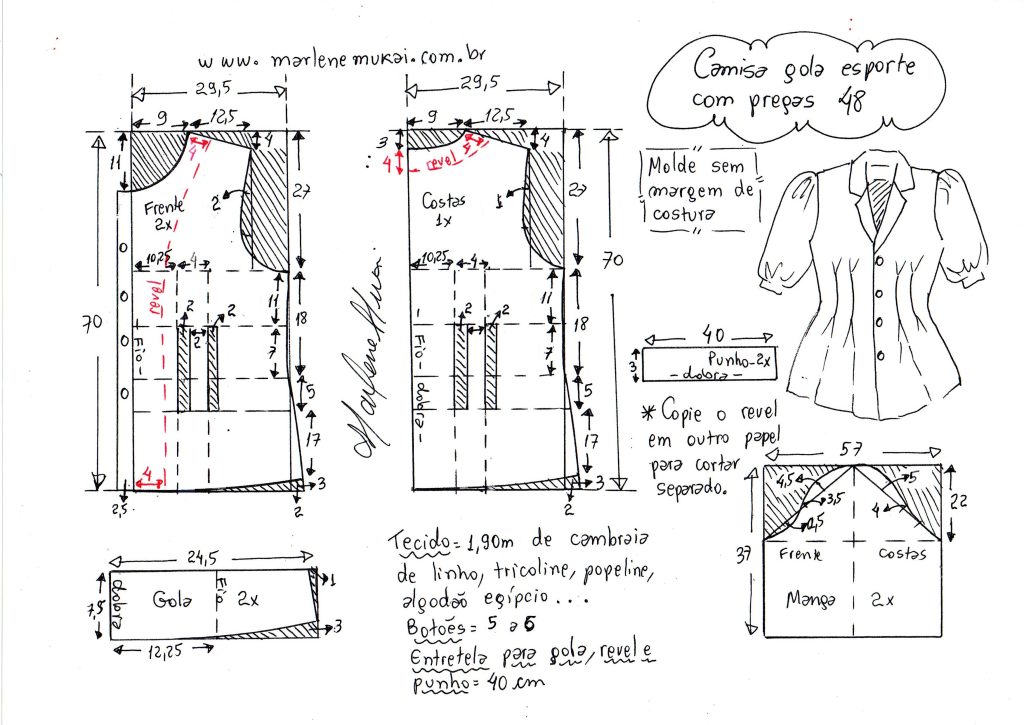 www.marlenemukai.com.br
Camisa gola esporte
com pregas 48
Molde sem
margem de
costura
29,5
9
12,5
4
11
4
27
2
Frente
2x
10,25
4
revel
70
2
2
2
11
18
7
Fio
5
17
4
3
2,5
2
MarleneMukai
29,5
9
12,5
3
4
4
revel
5
27
1
Costas
1x
10,25
4
70
2
2
2
11
18
7
- Fio - dobra -
5
17
3
2
40
3
Punho-2x
- dobra -
* Copie o revel
em outro papel
para cortar
separado.
57
4,5
3,5
0,5
5
4
22
37
Frente
Costas
Manga 2x
24,5
7,5
dobra
Gola
Fio
2x
1
3
12,25
Tecido = 1,90m de cambraia
de linho, tricoline, popeline,
algodão egípcio...
Botões = 5 a 6
Entretela para gola, revel e
punho = 40 cm